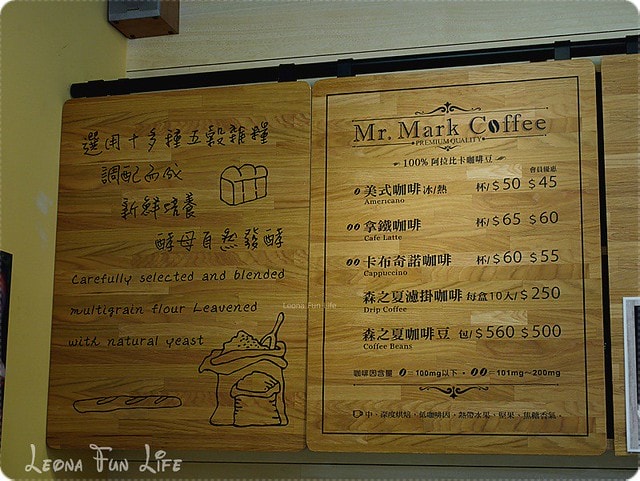 選用十多種五穀雜糧
調配而成
新鮮培養
酵母自然發酵
Carefully selected and blended
multigrain flour Leavened
with natural yeast
Mr. Mark Coffee
PREMIUM QUALITY
100% 阿拉比卡咖啡豆
會員優惠
美式咖啡 冰/熱 杯/$50 $45
Americano
拿鐵咖啡 杯/$65 $60
Cafe Latte
卡布奇諾咖啡 杯/$60 $55
Cappuccino
森之夏濾掛咖啡 每盒10入/$250
Drip Coffee
森之夏咖啡豆 包/$560 $500
Coffee Beans
咖啡因含量 =100mg以下・ =101mg~200mg
中、深度烘焙,低咖啡因,熱帶水果、堅果、焦糖香氣。
Leona Fun Life
LEONA FUN LIFE